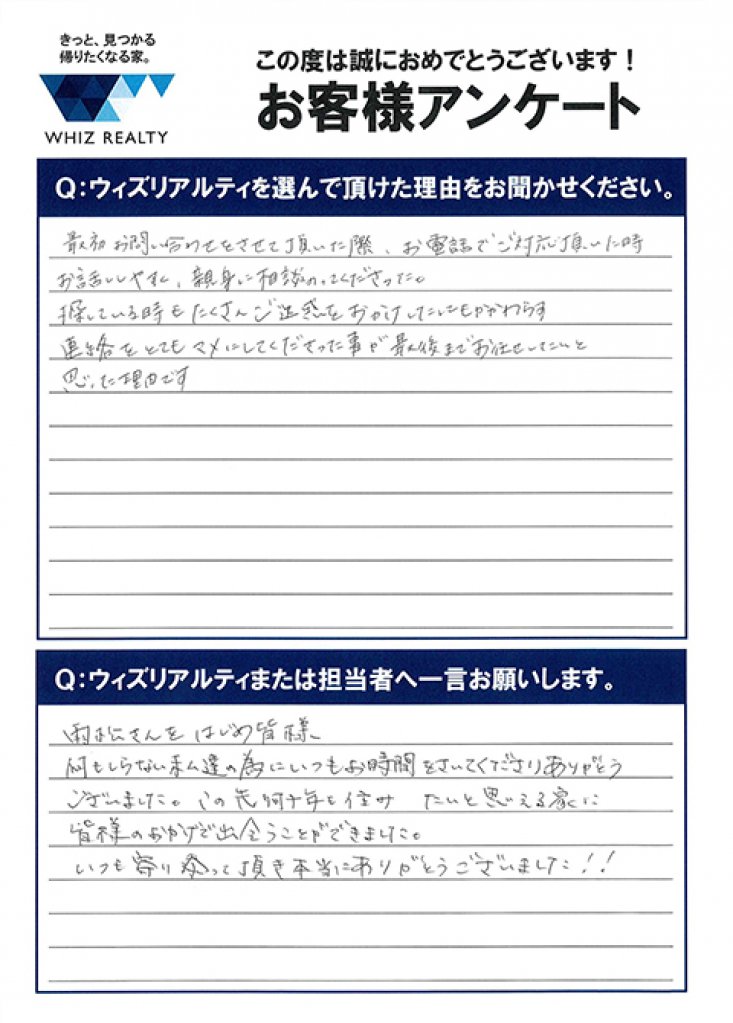 きっと、見つかる
帰りたくなる家。
WHIZ REALTY
この度は誠におめでとうございます！
お客様アンケート
Q：ウィズリアルティを選んで頂けた理由をお聞かせください。
最初お問い合わせをさせて頂いた際、お電話でご対応頂いた時
お話ししやすく、親身に相談のってくださった。
探している時もたくさんご迷惑をおかけしたにもかかわらず
連絡をとてもマメにしてくださった事が最後までお任せしたいと
思った理由です
Q：ウィズリアルティまたは担当者へ一言お願いします。
雨松さんをはじめ皆様、
何もしらない私達の為にいつもお時間をさいてくださりありがとう
ございました。この先何十年も住みたいと思える家に
皆様のおかげで出会うことができました。
いつも寄り添って頂き本当にありがとうございました！！